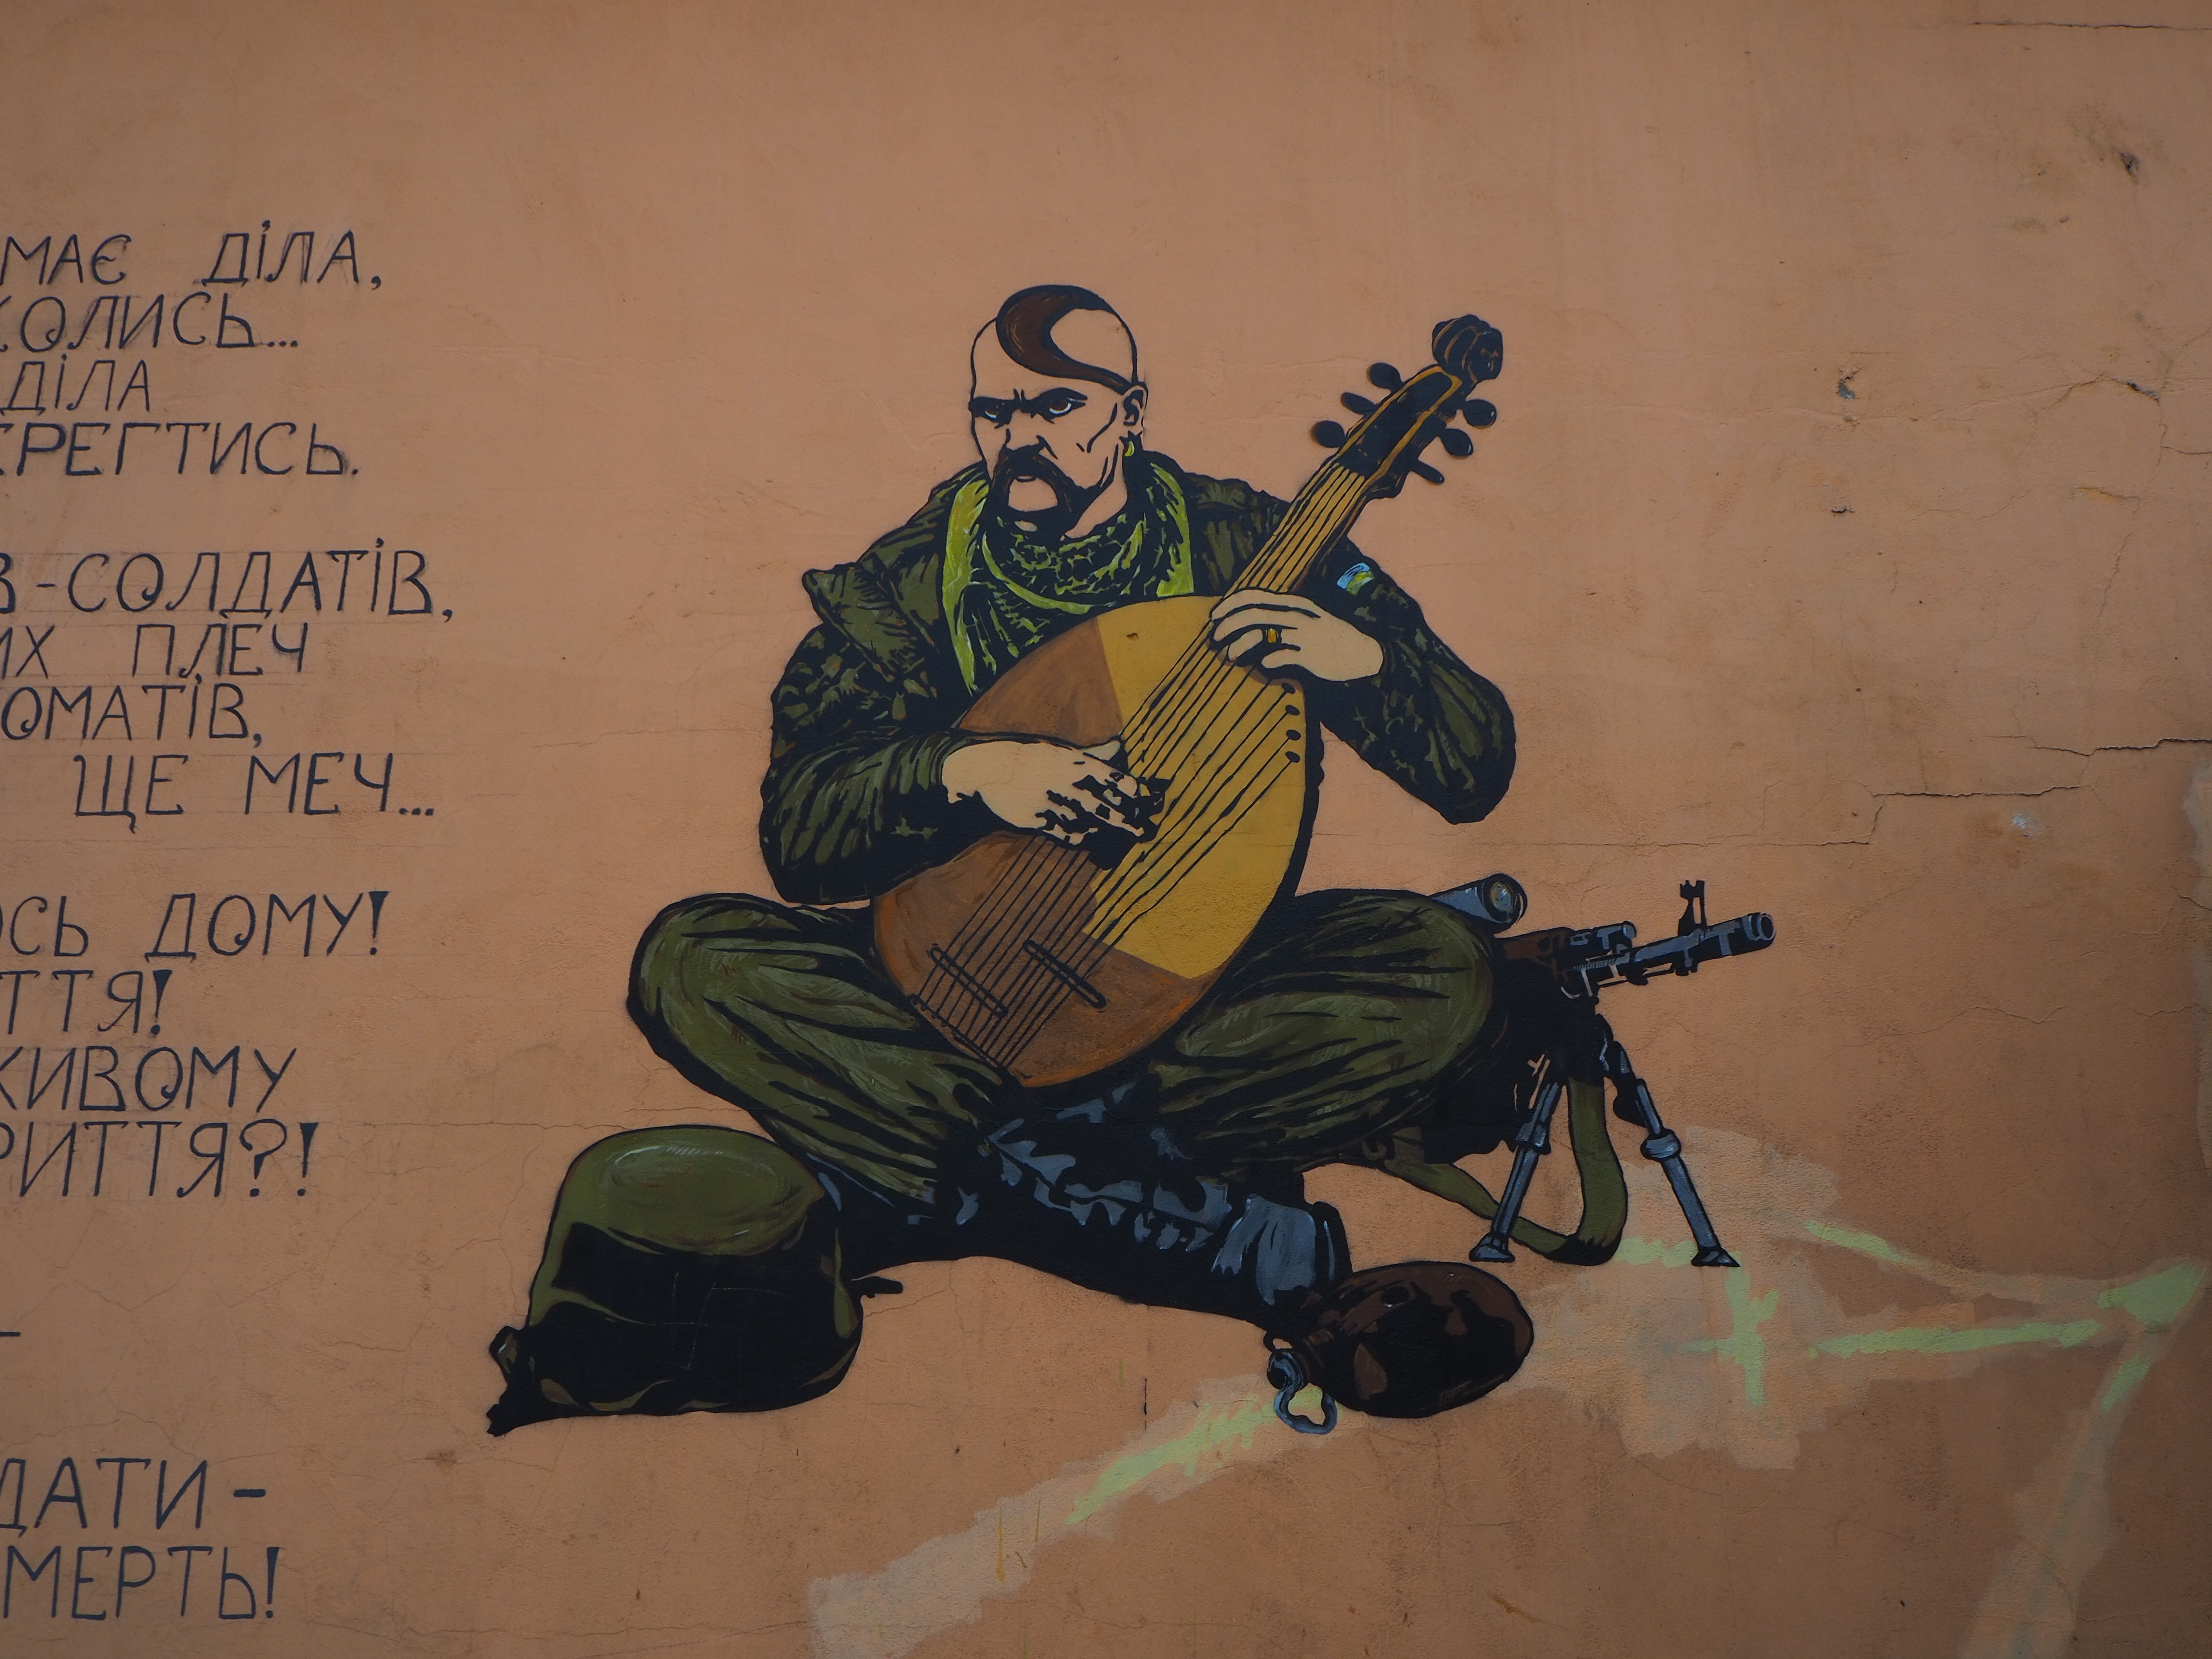 МАЄ ДІЛА,
КОЛИСЬ...
ДІЛА
ЕРЕГТИСЬ.
В-СОЛДАТІВ,
ИХ ПЛЕЧ
ОМАТІВ,
ЩЕ МЕЧ...
ОСЬ ДОМУ!
ТТЯ!
ЖИВОМУ
РИТТЯ?!
-
ДАТИ -
МЕРТЬ!